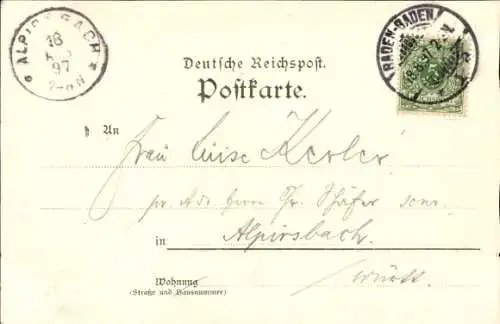 ALPIRSBACH
18
97
2-3N
BADEN-BADEN
18.8.97.
Deutsche Reichspost.
Postkarte.
An
Frau Luise Kerler
pr. Adr. Herrn Fr. Schäfer senr.
in Alpirsbach.
Wohnung
(Straße und Hausnummer)
Württ.